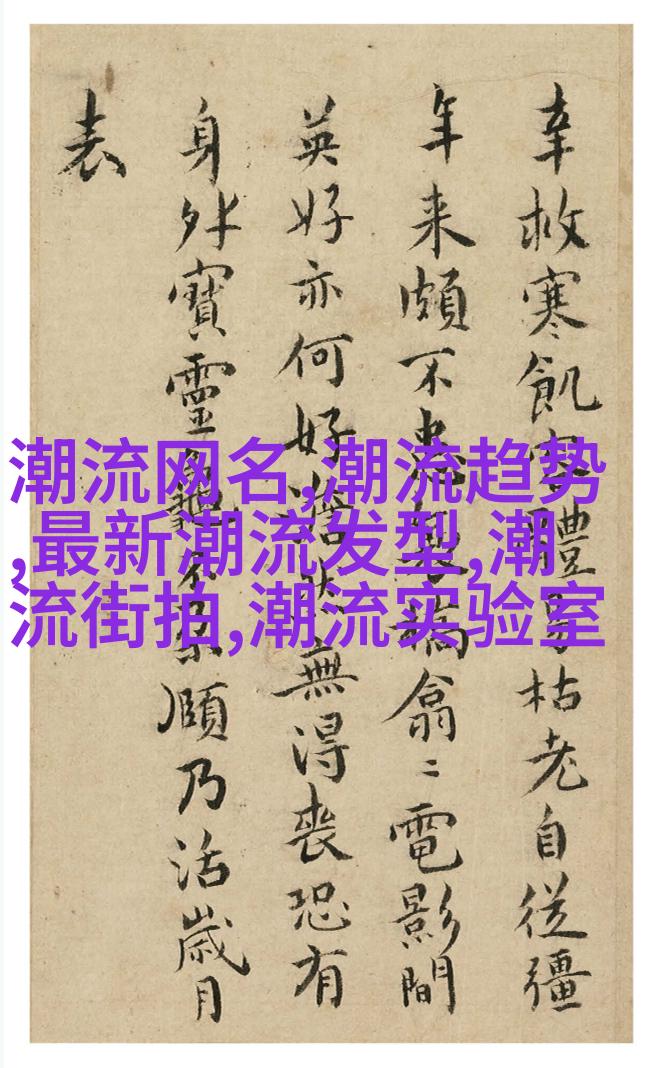 幸救寒飢體枯老自從彊
年来頗不翕〻電影間
英好亦何好無得喪恐有
身外寳靈龜頤乃活歲月
表
潮流网名,潮流趋势
,最新潮流发型,潮
流街拍,潮流实验室